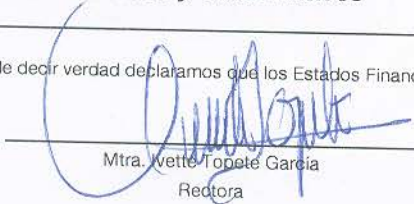 de decir verdad declaramos que los Estados Financ
Mtra. Ivette Topete García
Rectora